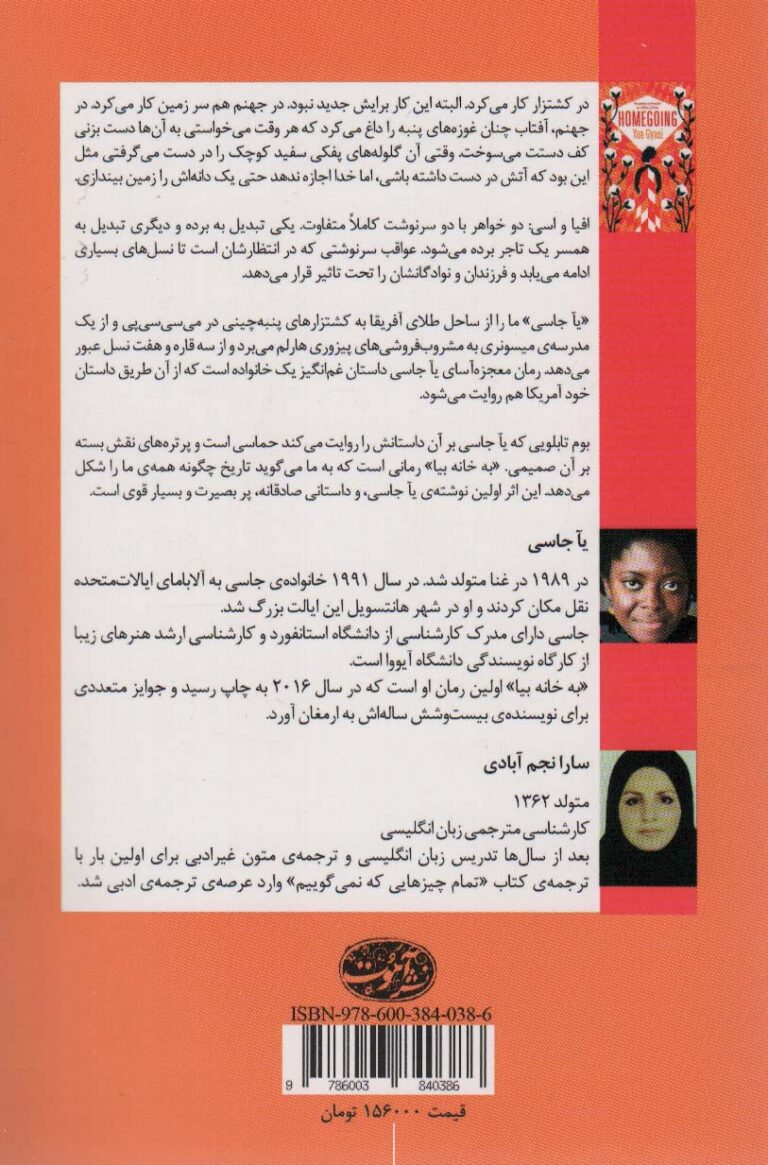 در کشتزار کار می‌کرد. البته این کار برایش جدید نبود. در جهنم هم سر زمین کار می‌کرد. در
جهنم، آفتاب چنان غوزه‌های پنبه را داغ می‌کرد که هر وقت می‌خواستی به آن‌ها دست بزنی
کف دستت می‌سوخت. وقتی آن گلوله‌های پفکی سفید کوچک را در دست می‌گرفتی مثل
این بود که آتش در دست داشته باشی، اما خدا اجازه ندهد حتی یک دانه‌اش را زمین بیندازی.
افیا و اسی: دو خواهر با دو سرنوشت کاملاً متفاوت. یکی تبدیل به برده و دیگری تبدیل به
همسر یک تاجر برده می‌شود. عواقب سرنوشتی که در انتظارشان است تا نسل‌های بسیاری
ادامه می‌یابد و فرزندان و نوادگانشان را تحت تاثیر قرار می‌دهد.
«یآ جاسی» ما را از ساحل طلای آفریقا به کشتزارهای پنبه‌چینی در می‌سی‌سی‌پی و از یک
مدرسه‌ی میسونری به مشروب‌فروشی‌های پیزوری هارلم می‌برد و از سه قاره و هفت نسل عبور
می‌دهد. رمان معجزه‌آسای یآ جاسی داستان غم‌انگیز یک خانواده است که از آن طریق داستان
خود آمریکا هم روایت می‌شود.
بوم تابلویی که یآ جاسی بر آن داستانش را روایت می‌کند حماسی است و پرتره‌های نقش بسته
بر آن صمیمی. «به خانه بیا» رمانی است که به ما می‌گوید تاریخ چگونه همه‌ی ما را شکل
می‌دهد. این اثر اولین نوشته‌ی یآ جاسی، و داستانی صادقانه، پر بصیرت و بسیار قوی است.
HOMEGOING
Yaa Gyasi
یآ جاسی
در ۱۹۸۹ در غنا متولد شد. در سال ۱۹۹۱ خانواده‌ی جاسی به آلابامای ایالات‌متحده
نقل مکان کردند و او در شهر هانتسویل این ایالت بزرگ شد.
جاسی دارای مدرک کارشناسی از دانشگاه استانفورد و کارشناسی ارشد هنرهای زیبا
از کارگاه نویسندگی دانشگاه آیووا است.
«به خانه بیا» اولین رمان او است که در سال ۲۰۱۶ به چاپ رسید و جوایز متعددی
برای نویسنده‌ی بیست‌وشش ساله‌اش به ارمغان آورد.
سارا نجم آبادی
متولد ۱۳۶۲
کارشناسی مترجمی زبان انگلیسی
بعد از سال‌ها تدریس زبان انگلیسی و ترجمه‌ی متون غیرادبی برای اولین بار با
ترجمه‌ی کتاب «تمام چیزهایی که نمی‌گوییم» وارد عرصه‌ی ترجمه‌ی ادبی شد.
نشر آموت
ISBN-978-600-384-038-6
9 786003 840386
قیمت ۱۵۶۰۰۰ تومان